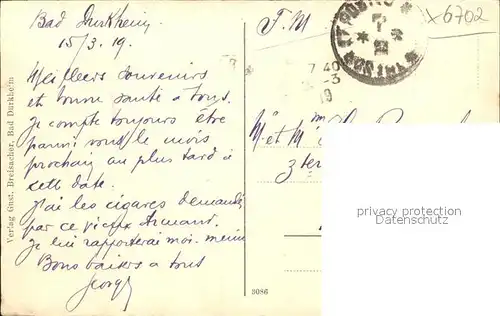 Bad Durkheim
15/3.19.
Meilleurs souvenirs
et bonne santé a tous.
Je compte toujours être
parmi vous le mois
prochain au plus tard à
cette date.
J'ai les cigares demandés
par ce vieux Armand.
Je lui rapporterai moi-même
Bons baisers a tous
Georges
Verlag Gust. Breisacher, Bad Durkheim
F. M.
x6702
7 40
-3
19
M. et Mme
3 ter
privacy protection
Copyright by
3086